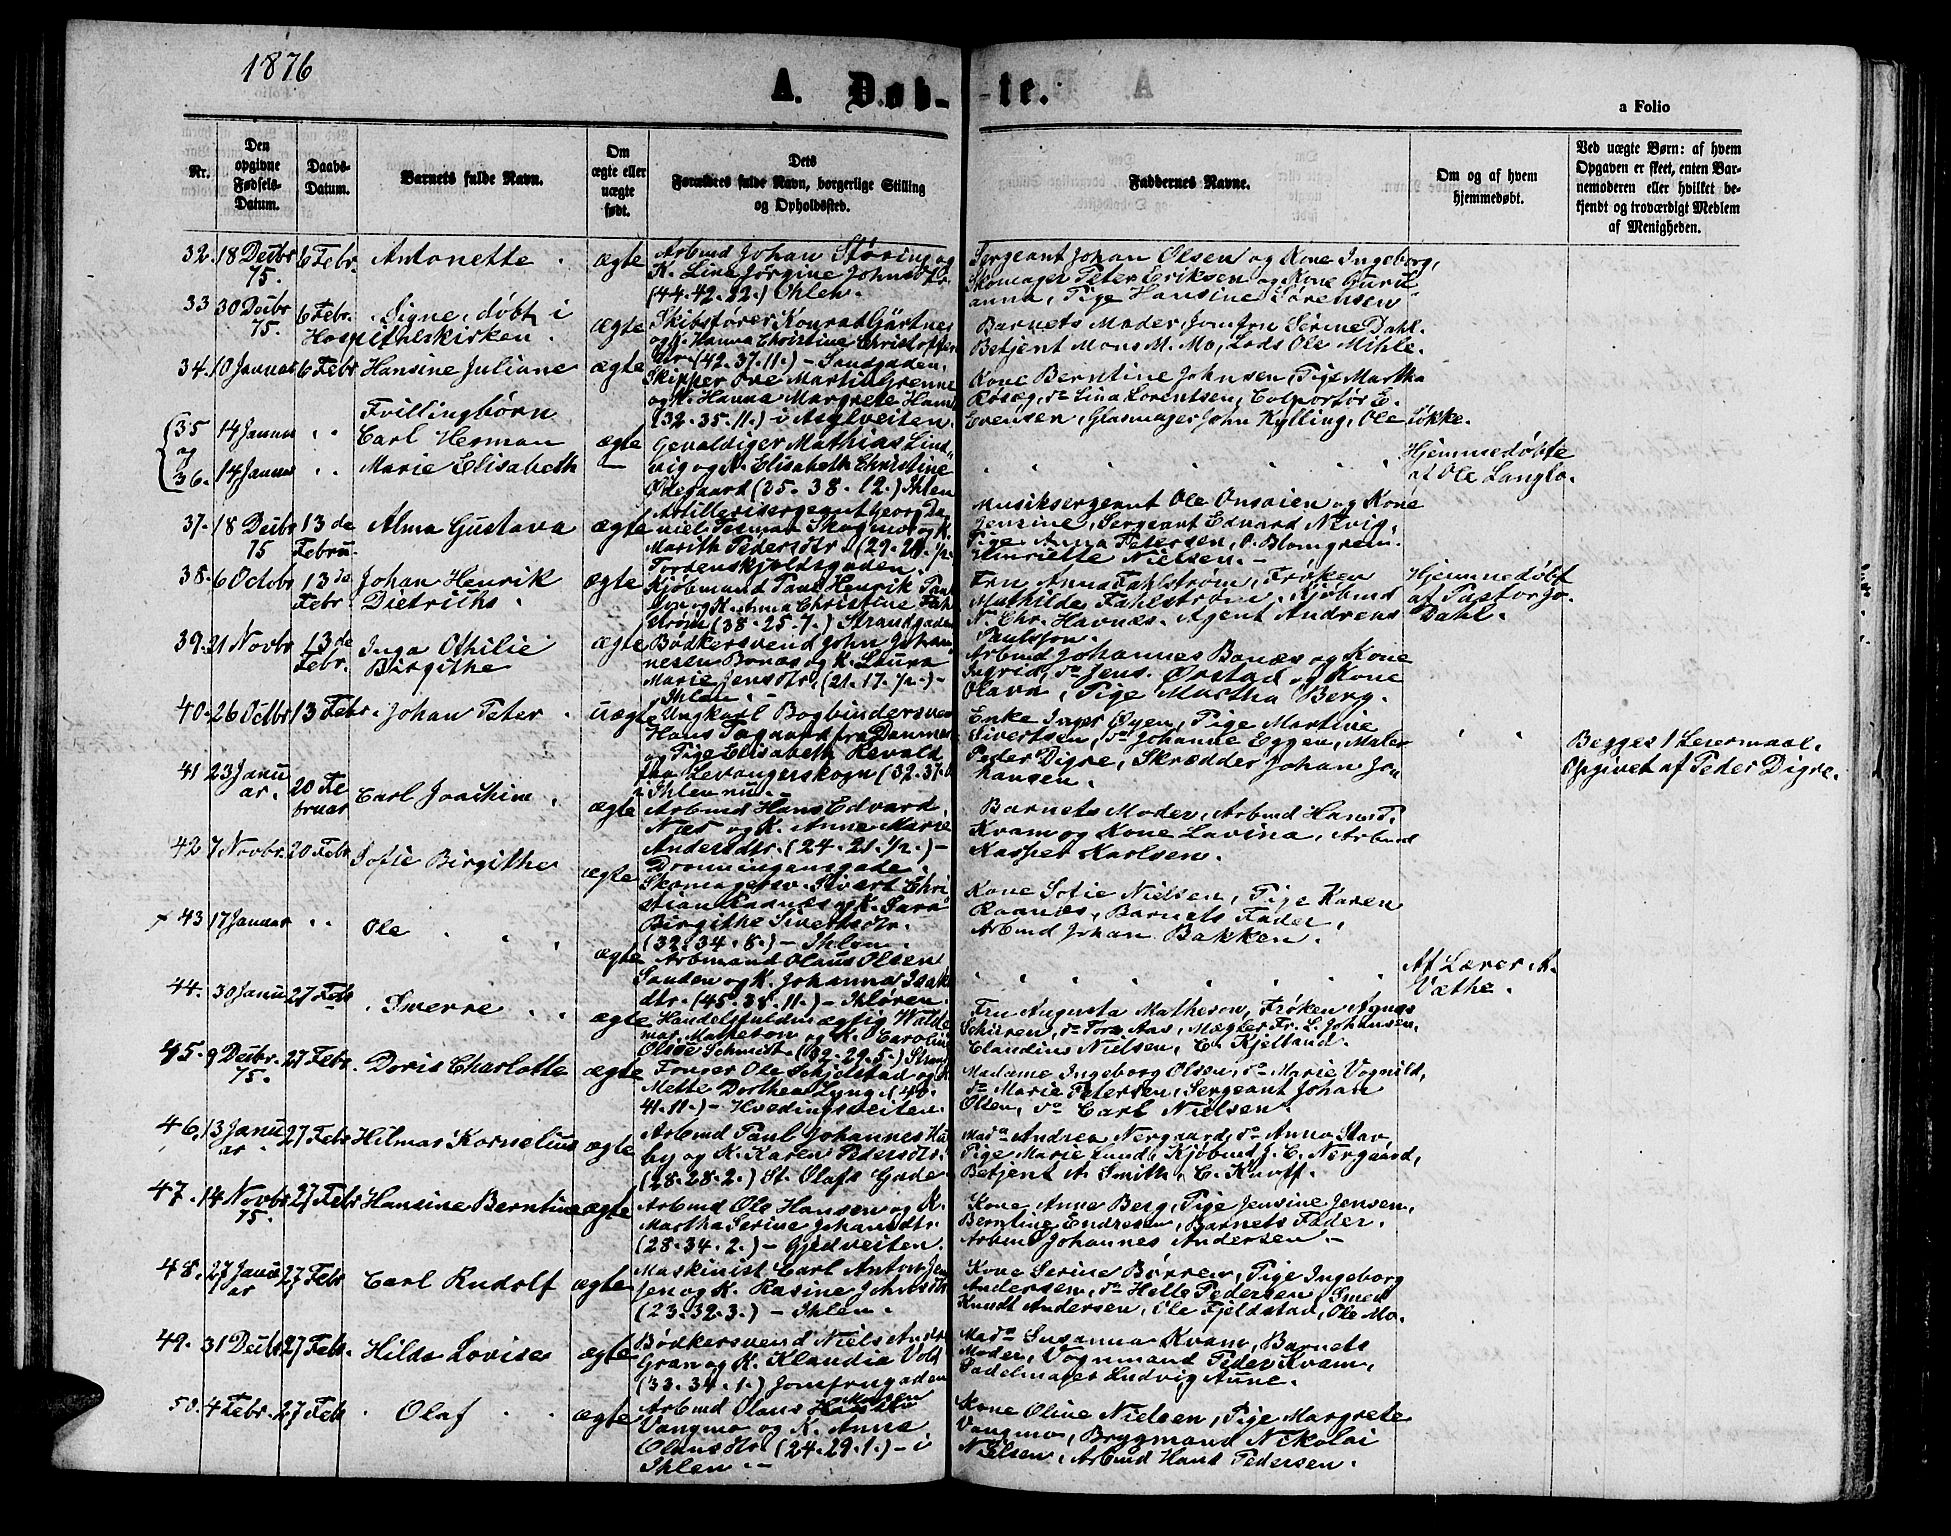 1876
A. Døb-
-te.
a Folio
Nr.
Den
opgivne
Fødsels-
Datum.
Daabs-
Datum.
Barnets fulde Navn.
Om
ægte eller
uægte
født.
Dets
Forældres fulde Navn, borgerlige Stilling
og Opholdssted.
Faddernes Navne.
Om og af hvem
hjemmedøbt.
Ved uægte Børn: af hvem
Opgaven er skeet, enten Bar-
nemoderen eller hvilket be-
kjendt og troværdigt Medlem
af Menigheden.
32. 18 Decbr 75. 6 Febr. Antonette ægte
Arbmd Johan Støring og
K. Line Jørgine Johnsdtr.
(44.42.22.) Ihlen.
Sergeant Johan Olsen og Kone Ingeborg,
Skomager Peter Eriksen og Kone Guru
anna, Pige Hansine Sørensen
33 30 Decbr 75. 6 Febr. Signe, døbt i
Hospitalskirken. ægte
Skibsfører Konrad Gärtner
og K. Hanna Christine Christoffer
(42.37.11.) - Sandgaden.
Barnets Moder, Jomfru Serine Dahl.
Betjent Mons M. Mo, Lods Ole Mihle.
34. 10 Januar 6 Febr Hansine Juliane ægte
Skipper Ove Martin Grenne
og K. Hanna Margrete Hans
(32.35.11.) i Asylveiten.
Kone Berntine Johnsen, Pige Martha
Rosæg, do Lina Lorentsen, Colportør E.
Evensen, Glasmager John Kylling, Ole Løkke.
Tvillingbørn
35 14 Januar " " Carl Herman ægte
og
36. 14 Januar " " Marie Elisabeth —
Gevaldiger Mathias Lind-
vig og K. Elisabeth Christine
Ødegaard (35.38.12.) Ihlen
Hjemmedøbte
af Ole Langlo.
37. 18 Decbr 75 13de Febru. Alma Gustava ægte
Artillerisergeant Georg Da
niel Tesman Skogmo og K.
Marith Pedersdtr. (29.28.½.
Tordenskjoldsgaden.
Musiksergeant Ole Onsøien og Kone
Jensine, Sergeant Edvard Nævig,
Pige Anna Petersen, O. Blomgren.
Henriette Nielsen. -
38. 6 Octobr 13de Febr. Johan Henrik
Dietrichs. ægte
Kjøbmand Paul Henrik Paul
son og K. Anna Christine Fahl
strøm (38.25.7.) Strandgaden
Fru Anna Fahlstrøm, Frøken
Mathilde Fahlstrøm, Kjøbmd
N. Chr. Havnæs. Agent Andreas
Paulsson.
Hjemmedøbt
af Pastor Jo.
Dahl.
39. 21 Novbr 13de Febr. Inga Othilie
Birgithe ægte
Bødkersvend John Johan-
nesen Bonas og K. Laura
Marie Jensdtr. (21.17.½.) -
Ihlen. -
Arbmd Johannes Banæs og Kone
Ingrid, do Jens Ørstad og Kone
Olava, Pige Martha Berg.
40. 26 Octbr 13 Febr. Johan Peter. uægte
Ungkarl Bogbindersvend
Hans Tagaard fra Danmark
og Pige Elisabeth Revald
fra Levangerskogn (32.31.
i Ihlen nu. -
Enke Inger Øyen, Pige Martine
Sivertsen, do Johanne Eggen, Maler
Peder Digre, Skrædder Johan Jo-
hansen.
Begges 1 Leiermaal.
Opgivet af Peder Digre.
41 23 Janu
ar. 20 Fe
bruar Carl Joachim. ægte
Arbmd Hans Edvard
Næs og K. Anne Marie
Andersdtr. (24.21.½.) -
Dronningensgade.
Barnets Moder, Arbmd Hans P.
Kvam og Kone Lavina, Arbmd
Kasper Karlsen.
42 7 Novbr. 20 Febr Sofie Birgithe ægte
Skomagersv. Sivert Chri
stian Raanæs og K. Sara
Birgithe Sivertsdtr.
(32.34.8.) - Ihlen.
Kone Sofie Nielsen, Pige Karen
Raanæs, Barnets Fader,
Arbmd Johan Bakken.
43 17 Januar " " Ole ægte
Arbmand Olaus Olsen
Sanden og K. Johanna Isaks
dtr. (45.38.11.) - Ihløren.
Af Lærer A.
Væthe.
44. 30 Janu 27 Febr Swerre ægte
Handelsfuldmægtig Walde
mar Matheson og K. Caroline
Olsøe Schmidt. (32.29.5.) Strand
Fru Augusta Matheson, Frøken Agnes
Schiren, do Tora Aas, Mægler Fr. L. Johansen,
Claudius Nielsen, C. Kjelland.
45. 9 Decbr 75. 27 Febr. Doris Charlotte ægte
Ole Schjelstad og K.
Mette Dorthea Lyng. (40.
41.11.) - Hvedingsveiten.
Madame Ingeborg Olsen, do Marie Vognild,
do Marie Petersen, Sergeant Johan
Olsen, do Carl Nielsen.
46, 13 Janu
ar 27 Febr Hilmar Kornelius ægte
Arbmd Paul Johannes Hus
by og K. Karen Petersdtr.
(28.28.2.) St. Olafs Gade
Mada Andrea Nergaard, do Anna Stav,
Pige Marie Lund, Kjøbmd J. C. Nergaard,
Betjent A. Smith, C. Kroff.
47. 14 Novbr 75. 27 Febr Hansine Berntine ægte
Arbmd Ole Hansen og K.
Martha Serine Johansdtr.
(28.34.2.) - Gjedveiten.
Kone Anne Berg, Pige Jensine Jensen,
Berntine Endresen, Barnets Fader.
Arbmd Johannes Andersen. -
48. 27 Janu
ar 27 Febr Carl Rudolf ægte
Maskinist Carl Anton Jen
sen og K. Rasine Johnsdtr
(23.32.3.) - Ihlen.
Kone Serine Børren, Pige Ingeborg
Andersen, do Helle Pedersen, Smed
Knudt Andersen, Ole Fjeldstad, Ole Mo.
49. 31 Decbr 27 Febr. Hilda Lovise ægte
Bødkersvend Niels Andr.
Gran og K. Klaudia Vold
(33.34.1.) Jomfrugaden
Mada Susanna Kvam, Barnets
Moder, Vognmand Peder Kvam,
Sadelmager Ludvig Aune.
50. 4 Febr. 27 Feb Olaf ægte
Arbmd Olaus
Vangmo og K. Anna
Olausdtr (24.29.1.) - i
Ihlen. -
Kone Oline Nielsen, Pige Margrete
Vangmo, Brygmand Nikolai
Nielsen, Arbmd Hans Pedersen.